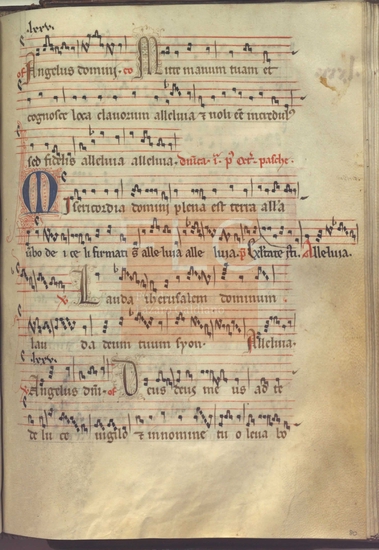 lxxv.
of Angelus domini. co Mitte manum tuam et
cognosce loca clavorum alleluia & noli eē incredul'
sed fidelis alleluia alleluia. dn̄ica. i. p' oct'. pasche.
Misericordia domini plena est terra alla
v̄bo de i ce li firmati s̄ alle luia alle luia. p̄ Exultate iusti. Alleluia.
Lauda iherusalem dominum
lau da deum tuum syon. Alleluia.
lxxv.
Angelus dn̄i. of Deus deus me us ad te
de lu ce vigilo & in nomine tu o leva bo